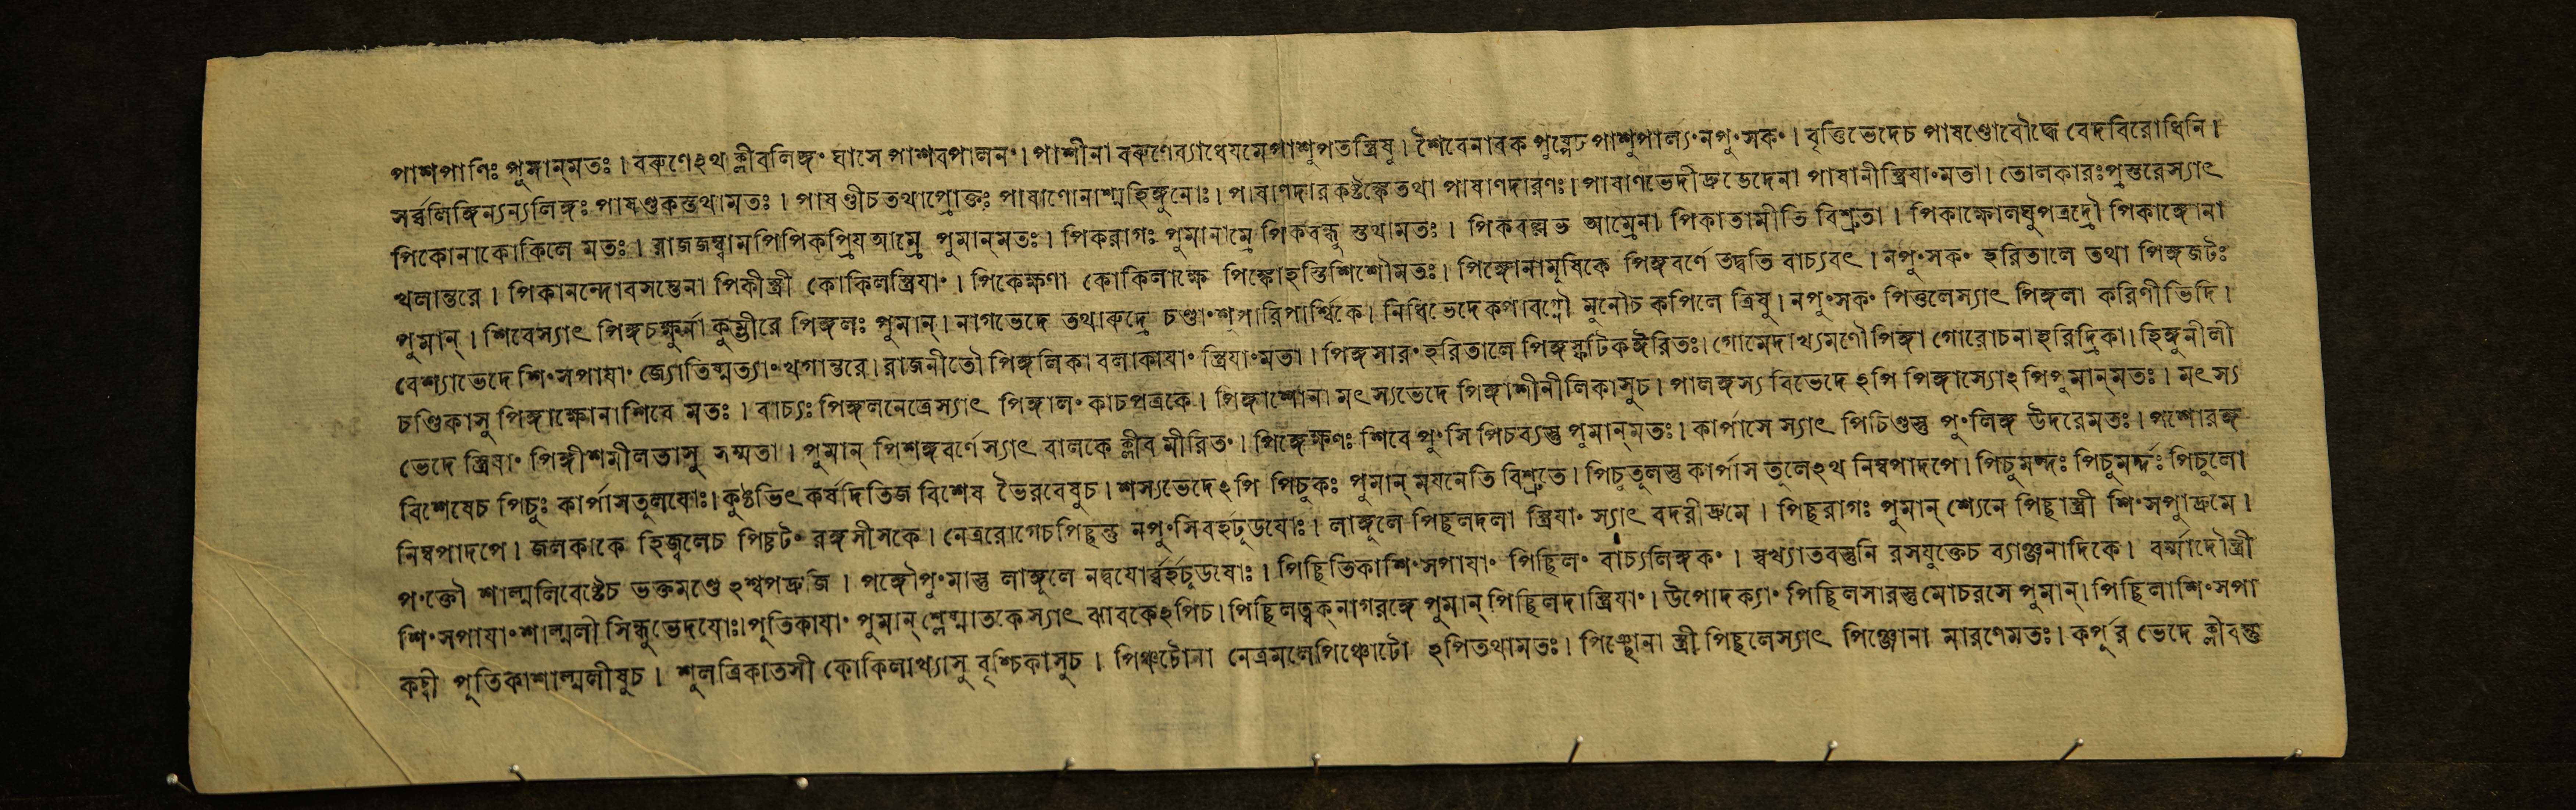 পাশপাণিঃ পুমান্মতঃ। বরুণেঽথ ক্লীবলিঙ্গং ঘাসে পাশবপালনং। পাশীনা বরুণেব্যাধেযমেপাশুপতস্ত্রিষু। শৈবেনাবক পুষ্পেচ পাশুপাল্যং নপুংসকং। বৃত্তিভেদেচ পাষণ্ডোবৌদ্ধে বেদবিরোধিনি।
সর্ব্বলিঙ্গিন্যন্যলিঙ্গঃ পাষণ্ডকস্তথামতঃ। পাষণ্ডীচতথাপ্রোক্তঃ পাষাণোনাশ্মহিঙ্গুনোঃ। পাষাণদারকষ্টঙ্কেতথা পাষাণদারণঃ। পাষাণভেদীদ্রুভেদেনা পাষানীস্ত্রিযাংমতা। তোলকারঃপ্রস্তরেস্যাৎ
পিকোনাকোকিলে মতঃ। রাজজম্ব্বামপিপিকপ্রিয আম্রে পুমান্মতঃ। পিকরাগঃ পুমানাম্রে পিকবন্ধু স্তথামতঃ। পিকবল্লভ আম্রেনা পিকাতামীতি বিশ্রুতা। পিকাক্ষোলঘুপত্রদ্রৌ পিকাঙ্গোনা
খলান্তরে। পিকানন্দোবসন্তেনা পিকীস্ত্রী কোকিলস্ত্রিযাং। পিকেক্ষণা কোকিলাক্ষে পিঙ্কোহস্তিশিশৌমতঃ। পিঙ্গোনামূষিকে পিঙ্গবর্ণে তদ্বতি বাচ্যবৎ। নপুংসকং হরিতালে তথা পিঙ্গজটঃ
পুমান্। শিবেস্যাৎ পিঙ্গচক্ষুর্না কুম্ভীরে পিঙ্গলঃ পুমান্। নাগভেদে তথারুদ্রে চণ্ডাংশুপারিপার্শ্বিকে। নিধিভেদেকপাবগ্নৌ মুনৌচ কপিলে ত্রিষু। নপুংসকং পিত্তলেস্যাৎ পিঙ্গলা করিণীভিদি।
বেশ্যাভেদে শিংসপাযাং জ্যোতিষ্মত্যাং খগান্তরে। রাজনীতৌ পিঙ্গলিকা বলাকাযাং স্ত্রিযাংমতা। পিঙ্গসারং হরিতালে পিঙ্গস্ফটিকঈরিতঃ। গোমেদাখ্যমণৌ পিঙ্গা গোরোচনাহরিদ্রিকা। হিঙ্গুনীলী
চণ্ডিকাসু পিঙ্গাক্ষোনাশিবে মতঃ। বাচ্যঃ পিঙ্গলনেত্রেস্যাৎ পিঙ্গালং কাচপত্রকে। পিঙ্গাশোনা মৎস্যভেদে পিঙ্গাশীনীলিকাসুচ। পালঙ্গস্য বিভেদে ঽপি পিঙ্গাস্যোঽপিপুমান্মতঃ। মৎস্য
ভেদে স্ত্রিযাং পিঙ্গীশমীলতাসু সম্মতা। পুমান্ পিশঙ্গবর্ণেস্যাৎ বালকে ক্লীবমীরিতং। পিঙ্গেক্ষণঃ শিবে পুংসি পিচব্যস্তু পুমান্মতঃ। কার্পাসে স্যাৎ পিচিণ্ডস্তু পুংলিঙ্গ উদরেমতঃ। পশোরঙ্গ
বিশেষেচ পিচুঃ কার্পাসতূলযোঃ। কুষ্ঠভিৎ কর্ষদিতিজ বিশেষ ভৈরবেষুচ। শস্যভেদেঽপি পিচুকঃ পুমান্ মযনেতি বিশ্রুতে। পিচুতূলস্তু কার্পাস তূলেঽথ নিম্বপাদপে। পিচুমন্দঃ পিচুমর্দ্দঃ পিচুলো
নিম্বপাদপে। জলকাকে হিজ্বলেচ পিচ্চটং রঙ্গসীসকে। নেত্ররোগেচপিচ্ছন্তু নপুংসিবর্হচূডযোঃ। লাঙ্গূলে পিচ্ছলদলা স্ত্রিযাং স্যাৎ বদরীদ্রুমে। পিচ্ছরাগঃ পুমান্ শ্যেনে পিচ্ছাস্ত্রী শিংসপাদ্রুমে।
পংক্তৌ শাল্মলিবেষ্টেচ ভক্তমণ্ডে ঽশ্বপদ্রুজি। পঙ্গৌপুংমাস্তু লাঙ্গূলে নদ্বযোর্ব্বর্হচূডযোঃ। পিচ্ছিতিকাশিংসপাযাং পিচ্ছিলং বাচ্যলিঙ্গকং। স্বখ্যাতবস্তুনি রসযুক্তেচ ব্যাঞ্জনাদিকে। বর্ম্মাদৌস্ত্রী
শিংসপাযাংশাল্মলী সিন্ধুভেদযোঃ। পূতিকাযাং পুমান্ শ্লেষ্মাতকেস্যাৎ ঝাবকেঽপিচ। পিচ্ছিলত্বক্নাগরঙ্গে পুমান্ পিচ্ছিলদাস্ত্রিযাং। উপোদক্যাং পিচ্ছিলসারস্তুমোচরসে পুমান্। পিচ্ছিলাশিংসপা
পূতিকাশাল্মলীষুচ। শূলত্রিকাতসী কোকিলাখ্যাসু বৃশ্চিকাসুচ। পিঞ্চটোনা নেত্রমলেপিঞ্চোটো ঽপিতথামতঃ। পিঞ্ছোনা স্ত্রী পিচ্ছলেস্যাৎ পিঞ্জোনা মারণেমতঃ। কর্পূর ভেদে ক্লীবন্তু